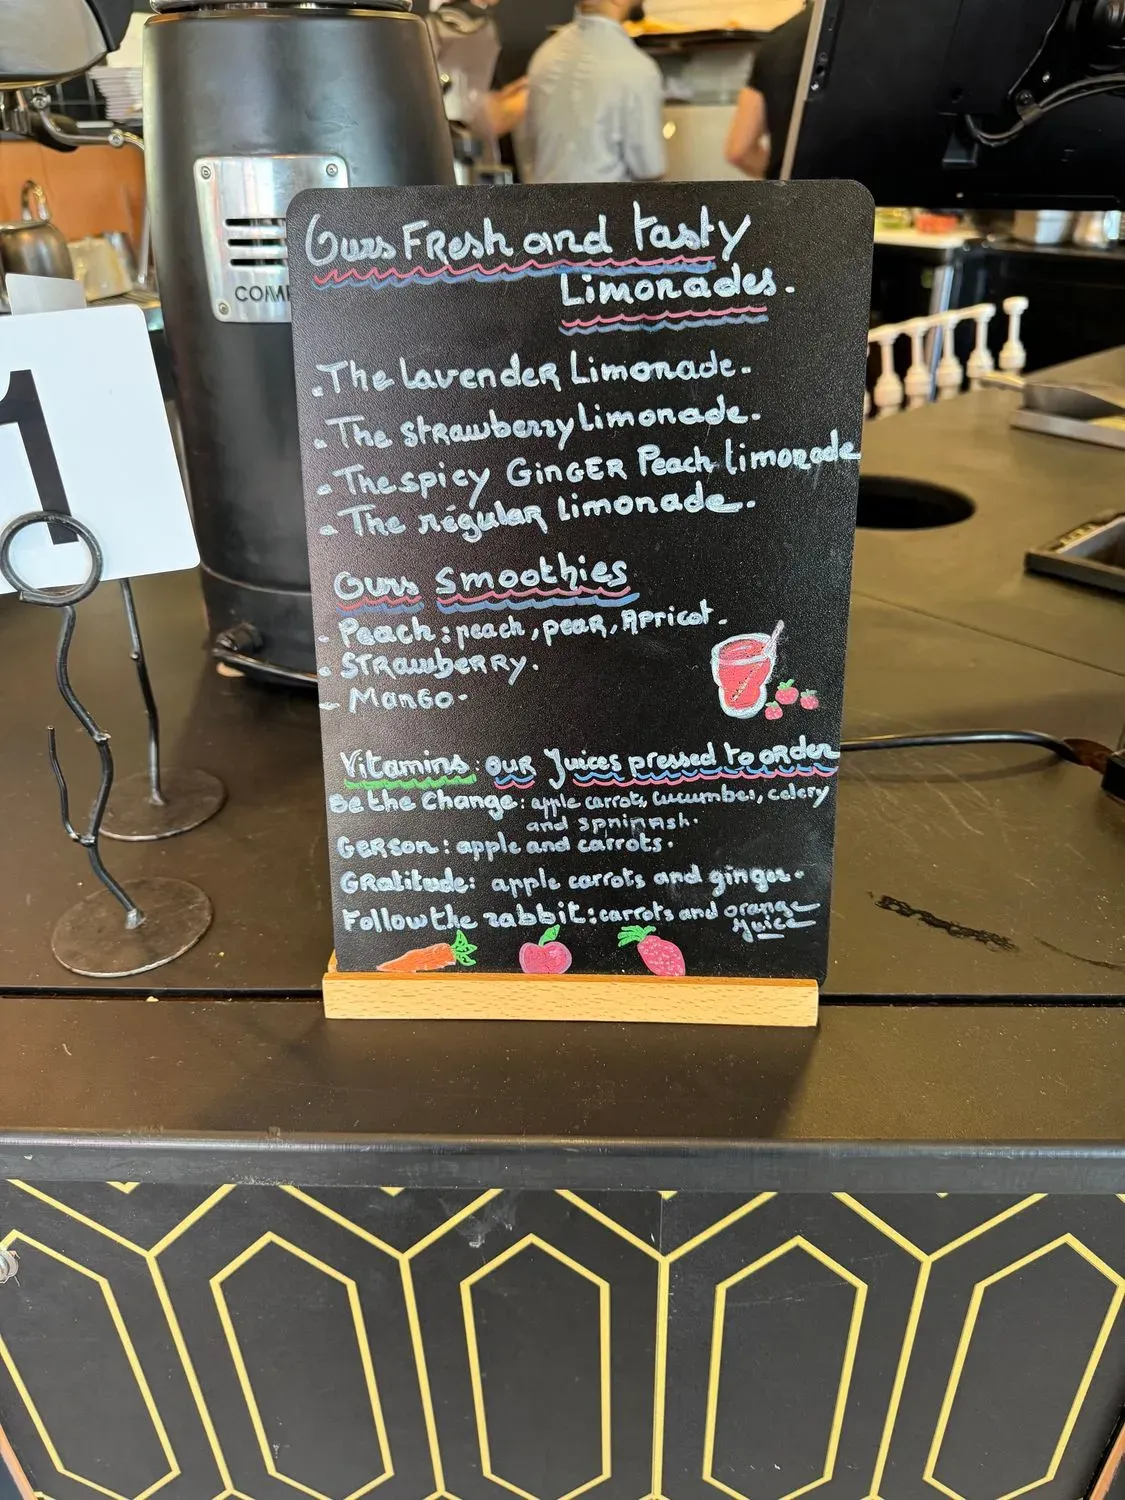 Ours Fresh and tasty
Limonades.
- The lavender Limonade.
- The strawberry limonade.
- The spicy GINGER Peach limonade
- The régular limonade.
Ours Smoothies
- Peach : peach, pear, Apricot.
- STRawbeRRy.
- Mango.
Vitamins: our Juices pressed to order
Be the Change: apple carrots, cucumber, celery
and spninash.
Gerson: apple and carrots.
Gratitude: apple carrots and ginger.
Follow the rabbit: carrots and orange
juice
1
COMP